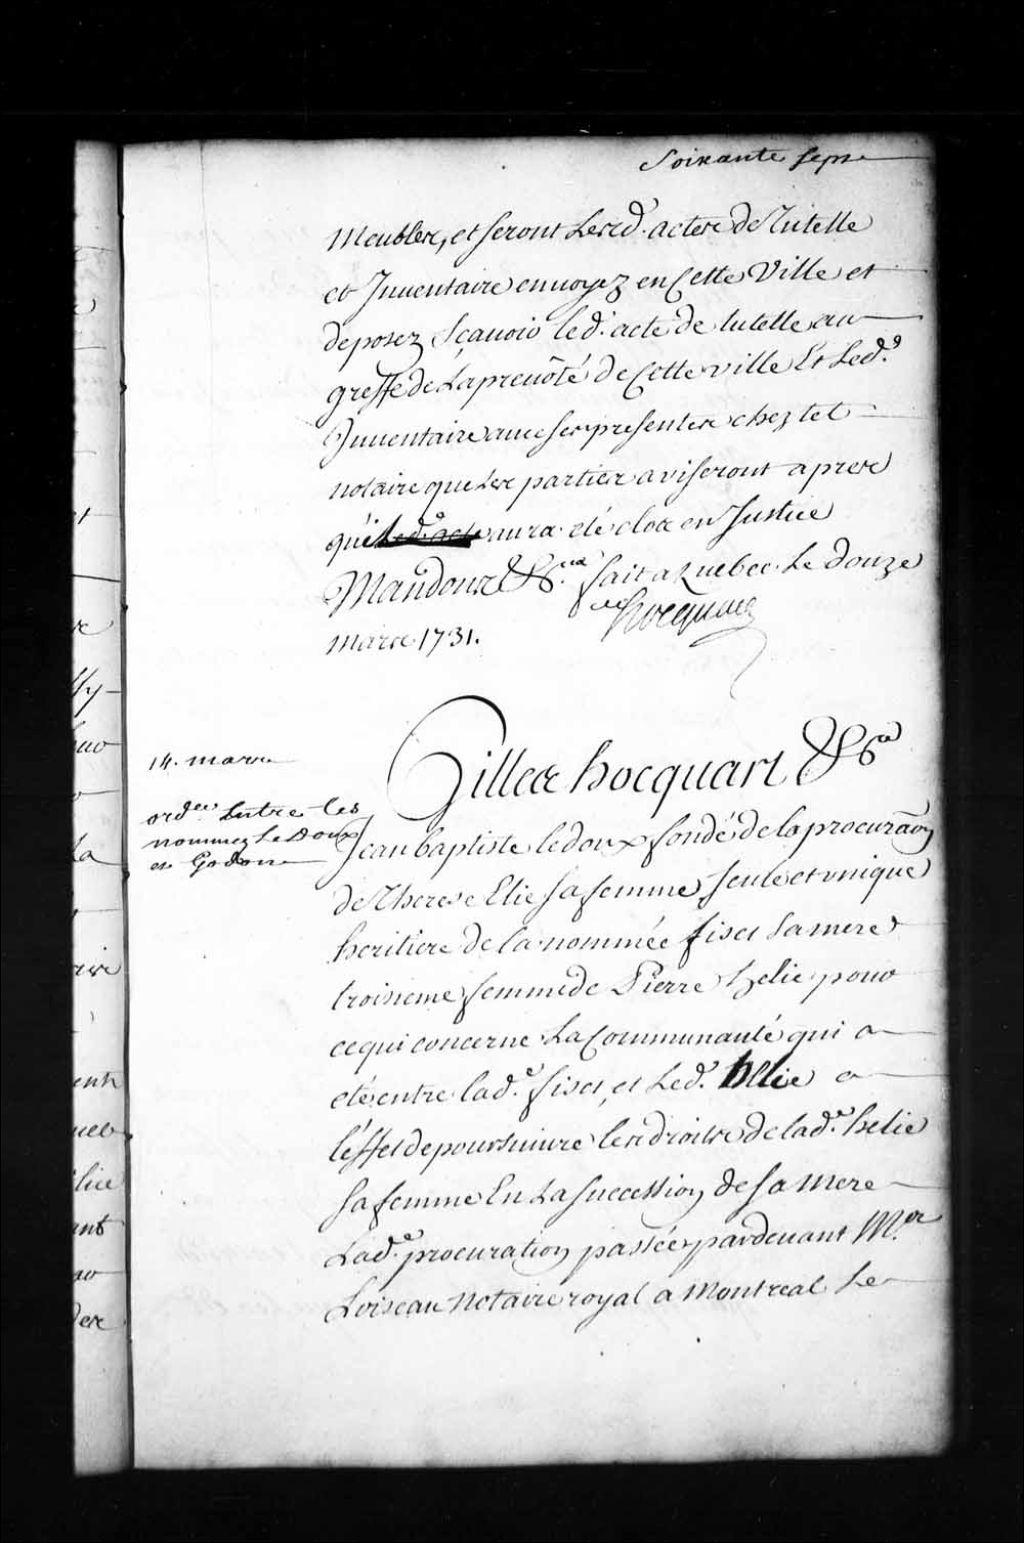 Soixante sept
Meubles, et seront Lesd. actes de Tutelle
et Inventaire envoyez en Cette Ville et
deposez Sçavoir led. acte de tutelle au
greffe de La prevôté de Cette ville Et Led.
Inventaire aux presentes chez tel
notaire que Les parties aviseront apres
qu'il aura eté clos en Justice
Mandons &ca. fait a Quebec Le douze
mars 1731. Hocquart
14. mars
ordce. Entre les
nommez Le Doux
et Godon
Gilles hocquart &ca
Jean baptiste ledoux fondé de la procuraõn
de Therese Elie sa femme, seule et unique
heritiere de la nommée fiset sa mere
troisieme femme de Pierre helie pour
ce qui concerne La Communauté qui a
eté entre lad.e fiset, et Led. hElie a
l'effet de poursuivre les droits de lad.e helie
sa femme En La Succession de sa mere
Lad.e procuration passée pardevant M.re
Loiseau Notaire royal a Montreal Le